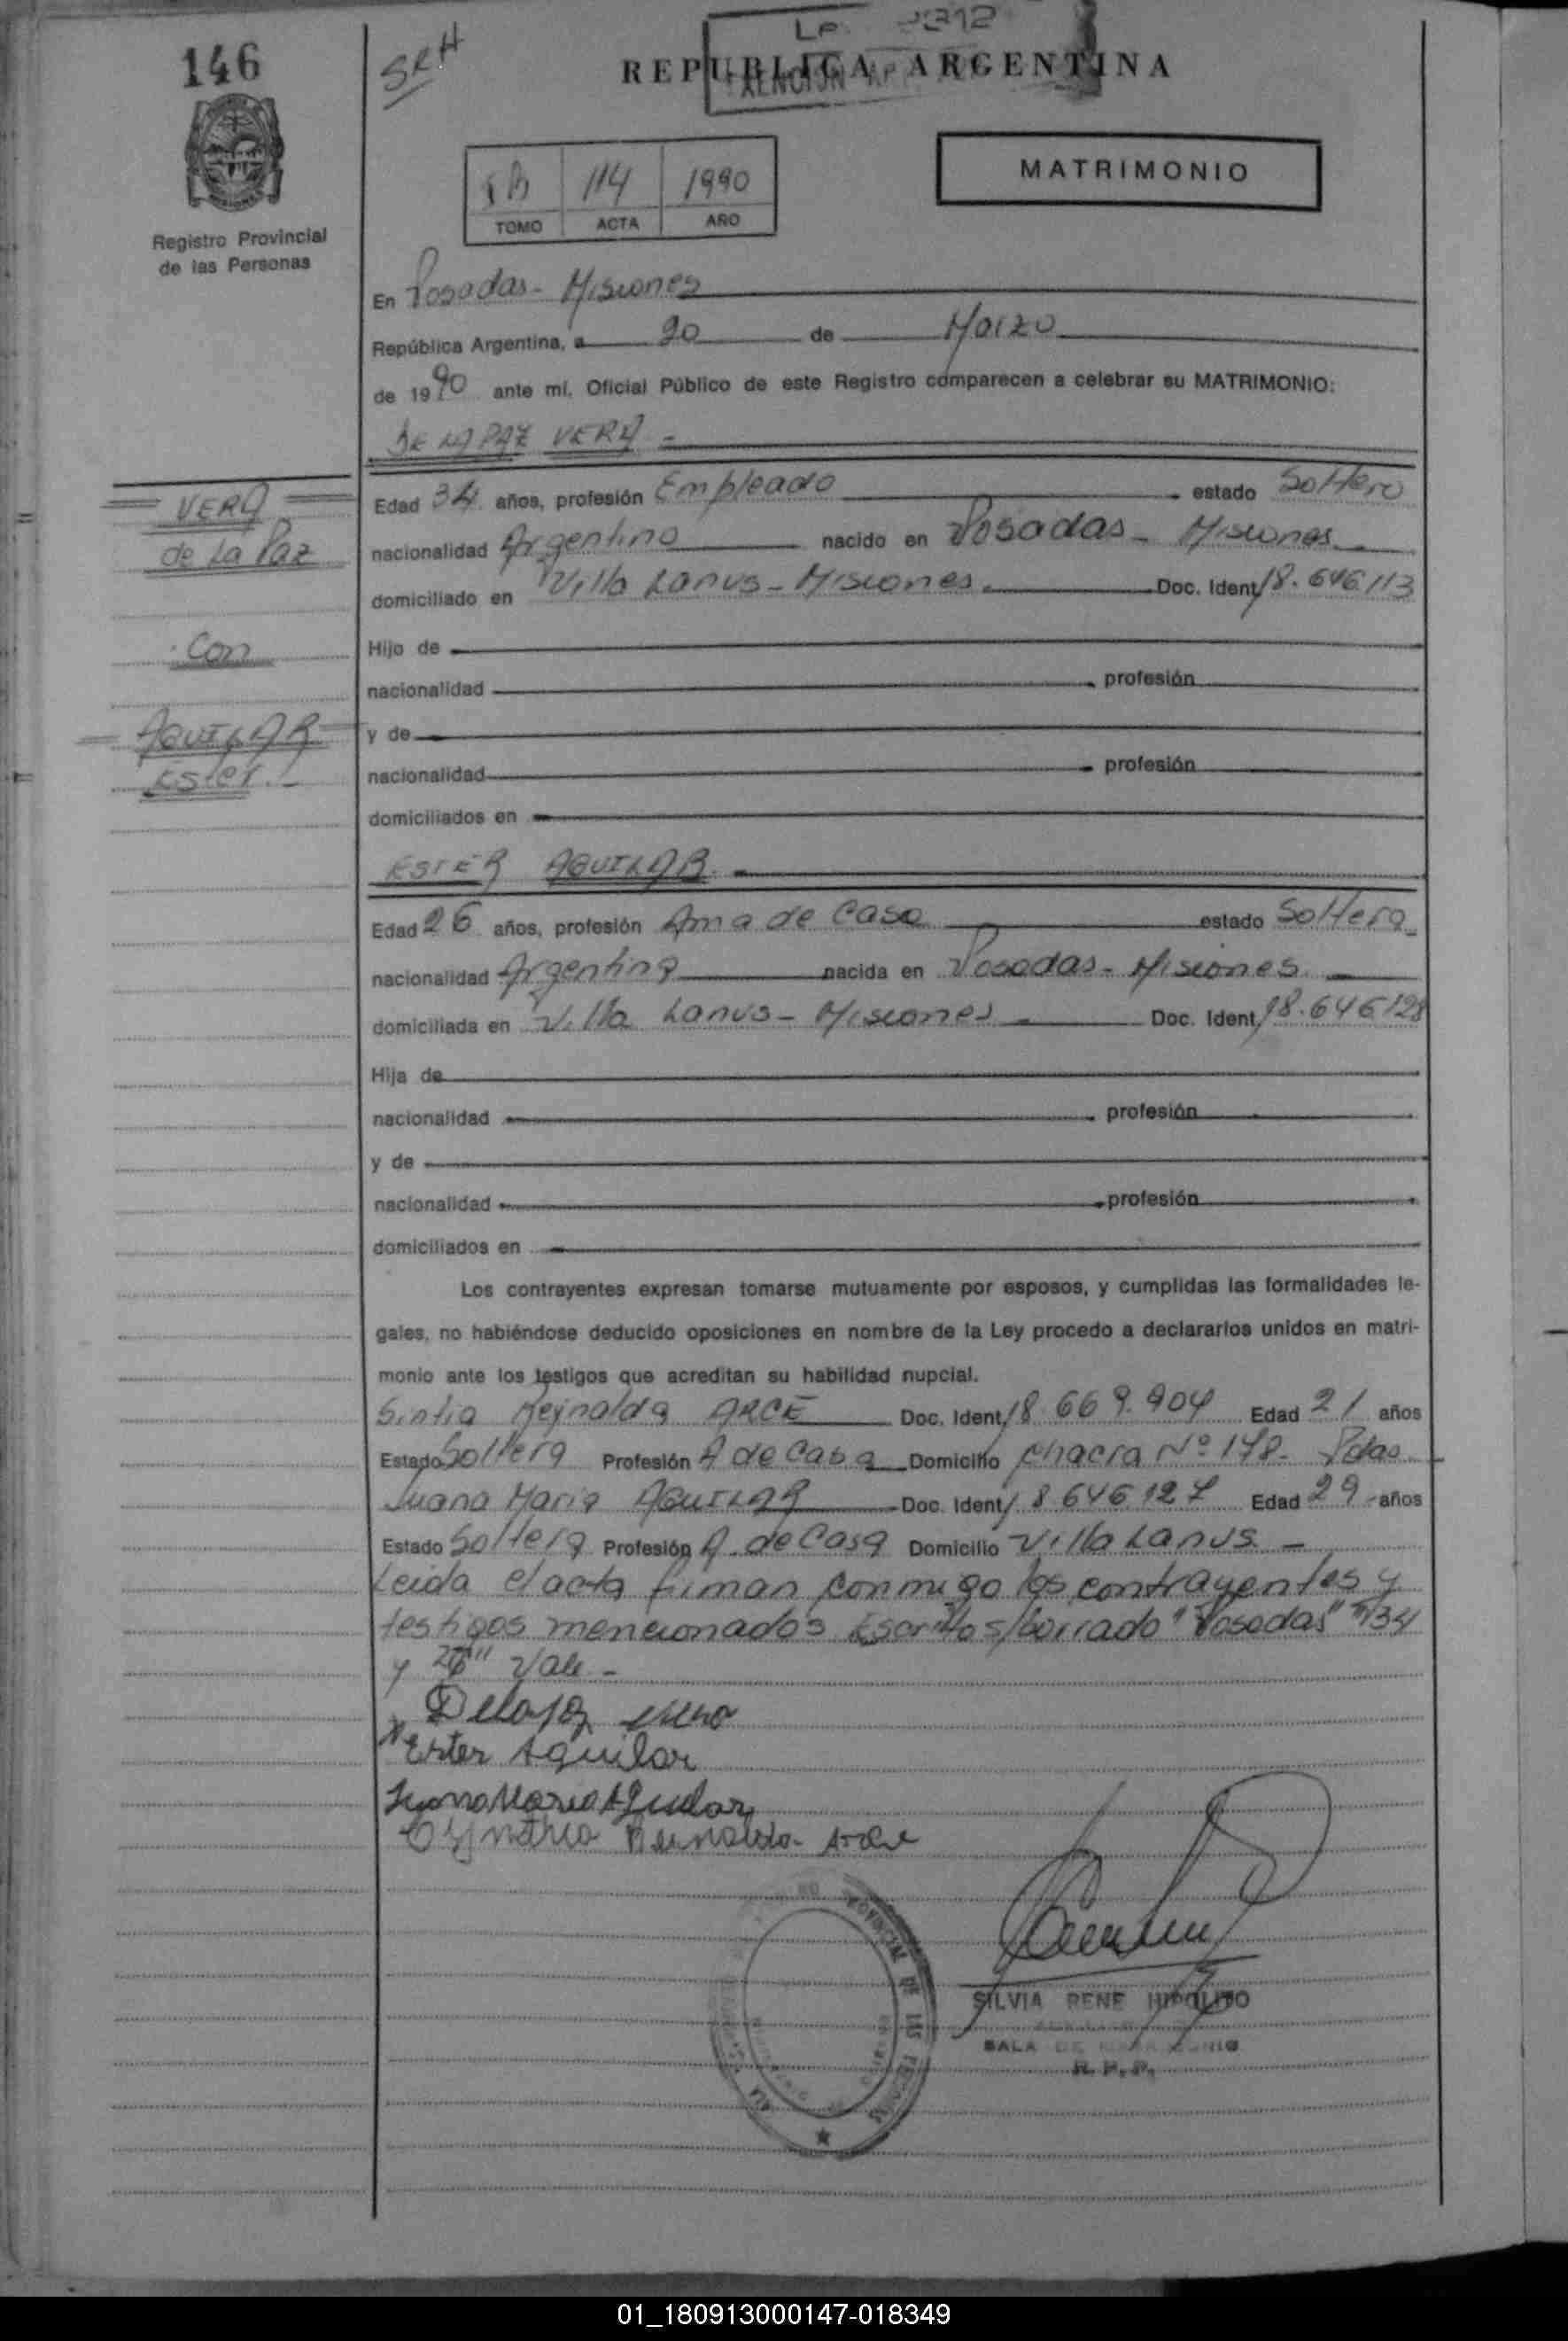 146
SRH
REPUBLICA ARGENTINA
Registro Provincial
de las Personas
114 1990
TOMO ACTA AÑO
MATRIMONIO
En Posadas - Misiones
República Argentina, a 20 de Marzo
de 1990 ante mí, Oficial Público de este Registro comparecen a celebrar su MATRIMONIO:
DE LA PAZ VERA -
VERA
de La Paz
Con
AGUILAR
Ester.-
Edad 34 años, profesión Empleado estado Soltero
nacionalidad Argentino nacido en Posadas - Misiones
domiciliado en Villa Lanus - Misiones. Doc. Ident. 18.646.113
Hijo de
nacionalidad profesión
y de
nacionalidad profesión
domiciliados en
ESTER AGUILAR.
Edad 26 años, profesión Ama de Casa estado Soltera
nacionalidad Argentina nacida en Posadas - Misiones
domiciliada en Villa Lanus - Misiones Doc. Ident. 18.646.128
Hija de
nacionalidad profesión
y de
nacionalidad profesión
domiciliados en
Los contrayentes expresan tomarse mutuamente por esposos, y cumplidas las formalidades le-
gales, no habiéndose deducido oposiciones en nombre de la Ley procedo a declararlos unidos en matri-
monio ante los testigos que acreditan su habilidad nupcial.
Sintia Reynalda ARCE Doc. Ident. 18.669.904 Edad 21 años
Estado Soltera Profesión A de Casa Domicilio Chacra Nº 148 - Pdas
Juana Maria AGUILAR Doc. Ident. 18.646.127 Edad 29 años
Estado Soltera Profesión A. de Casa Domicilio Villa Lanus. -
Leida el acta firman conmigo los contrayentes y
testigos mencionados Escritos s/borrado "Posadas" "34
y 26" Vale -
Delapaz vera
Ester Aguilar
Juana Maria Aguilar
Arce
SILVIA RENE HIPOLITO
SALA DE MATRIMONIO
R. P. P.
01_180913000147-018349